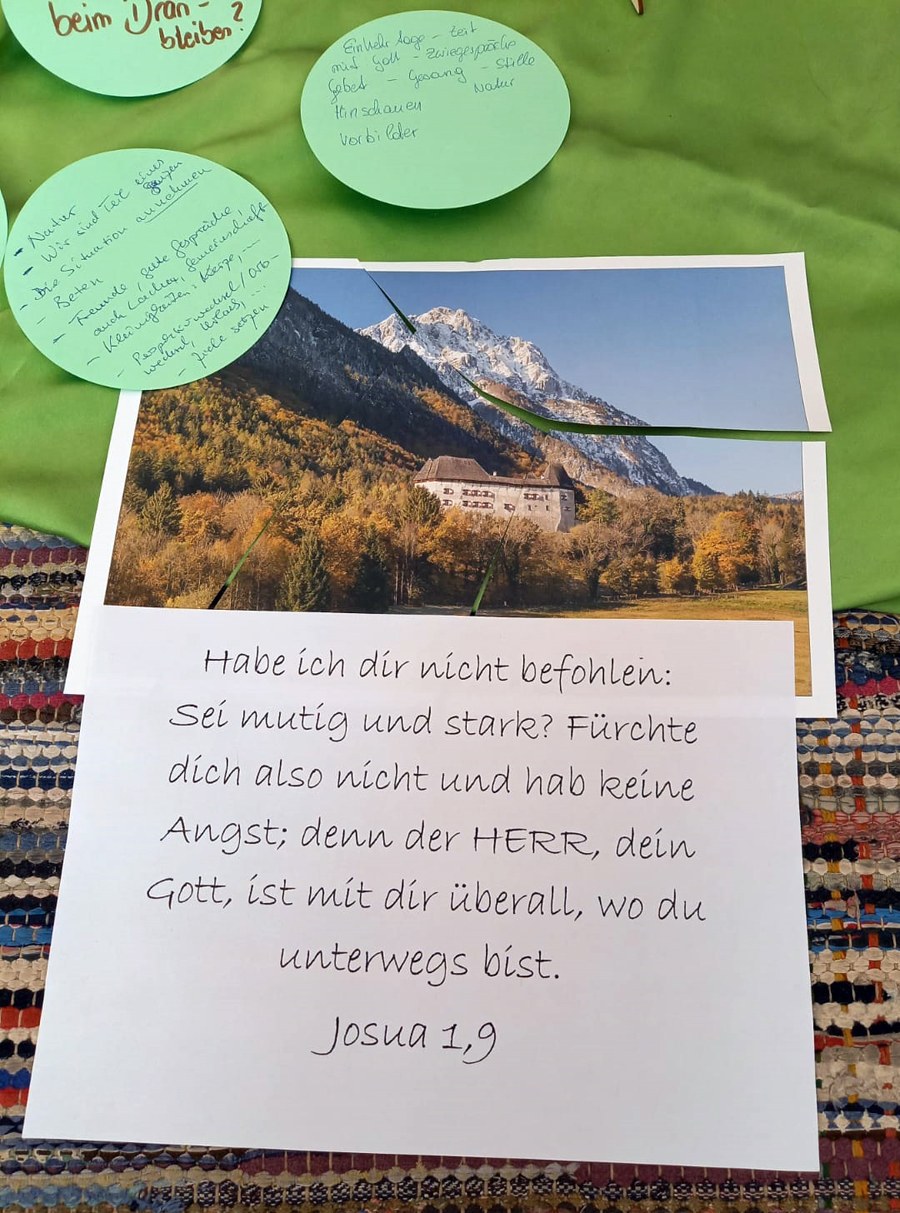 beim Dran-
bleiben?
Einkehrtage - Zeit
mit Gott - Zwiegespräche
Gebet - Gesang - Stille
Natur
Hinschauen
Vorbilder
- Natur
- Wir sind Teil eines
ganzen
- Die Situation annehmen
- Beten
- Freunde, gute Gespräche,
auch Lachen, Gemeinschaft
- Kleinigkeiten: Kerze, ...
- Perspektivwechsel / Orts-
wechsel, Urlaub, ...
- Ziele setzen
Habe ich dir nicht befohlen:
Sei mutig und stark? Fürchte
dich also nicht und hab keine
Angst; denn der HERR, dein
Gott, ist mit dir überall, wo du
unterwegs bist.
Josua 1,9